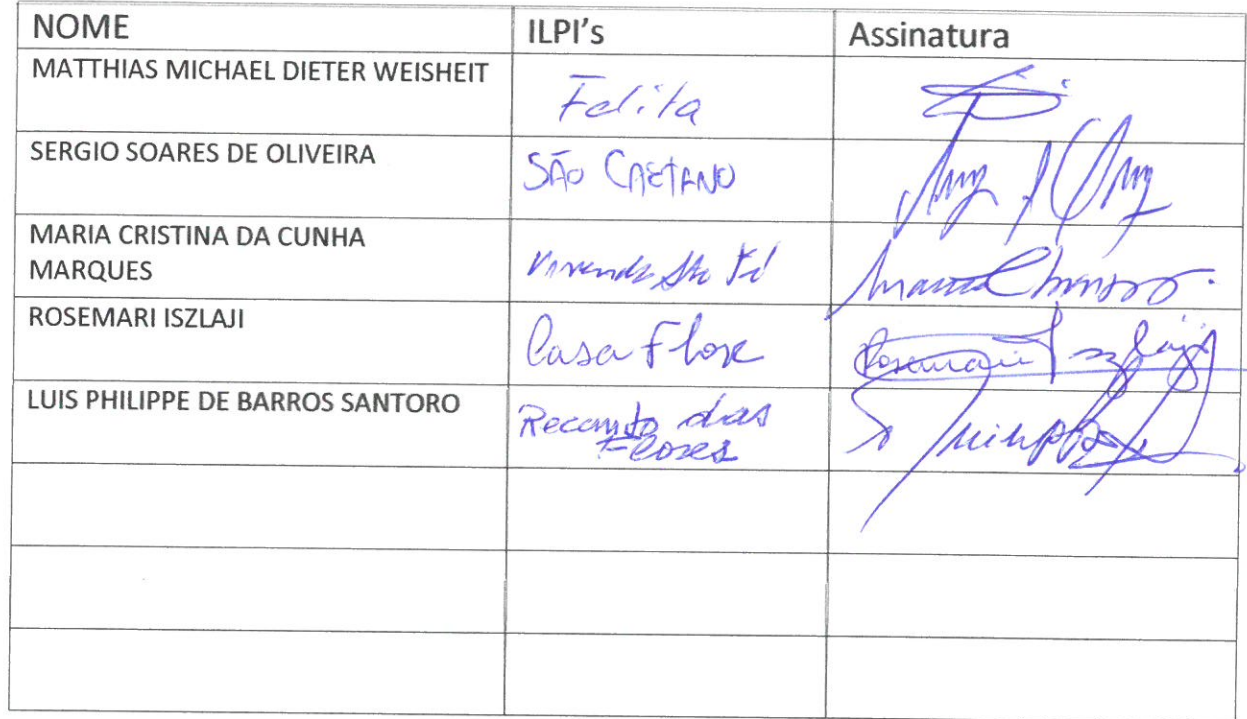 NOME ILPI's Assinatura
MATTHIAS MICHAEL DIETER WEISHEIT
SERGIO SOARES DE OLIVEIRA SÃO CAETANO
MARIA CRISTINA DA CUNHA
MARQUES
ROSEMARI ISZLAJI Casa Flore Rosemari Iszlaji
LUIS PHILIPPE DE BARROS SANTORO Recanto das
Flores